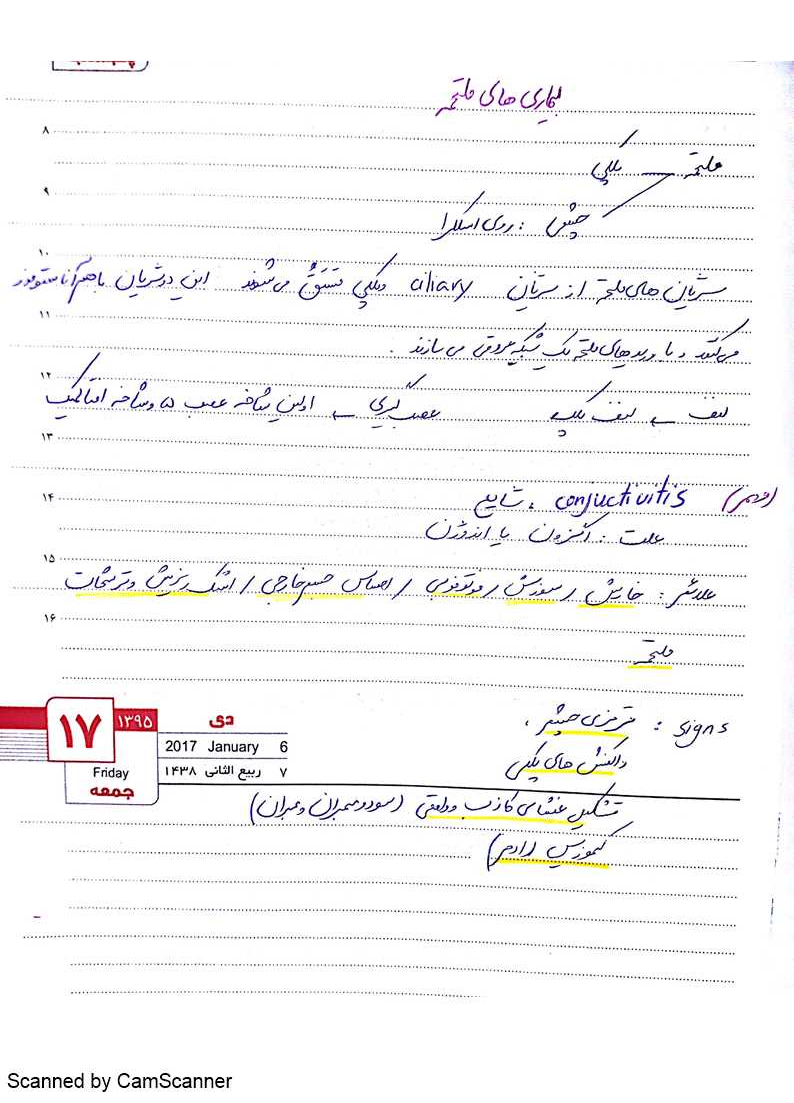 بیماری های ملتحمه
۸
ملتحمه پلکی
۹
چشمی : روی اسکلرا
۱۰
شریان های ملتحمه از شریان ciliary و پلکی مشتق می شوند این دو شریان باهم آناستوموز
۱۱
می کنند و با وریدهای ملتحمه یک شبکه عروقی می سازند .
۱۲
لنف ← لنف پلک عصب گیری ← اولین شاخه عصب ۵ و شاخه افتالمیک
۱۳
۱۴
(مهم) conjuctivitis ، شایع
علت : اگزوژن یا اندوژن
۱۵
علائم : خارش / سوزش / فوتوفوبی / احساس جسم خارجی / اشک ریزش و ترشحات
۱۶
ملتحمه
signs : قرمزی چشم ،
واکنش های پلکی
تشکیل غشای کاذب و واقعی (سودوممبران و ممبران)
کموزیس (ادم)
۱۷ ۱۳۹۵ دی
2017 January 6
Friday ۷ ربیع الثانی ۱۴۳۸
جمعه
Scanned by CamScanner